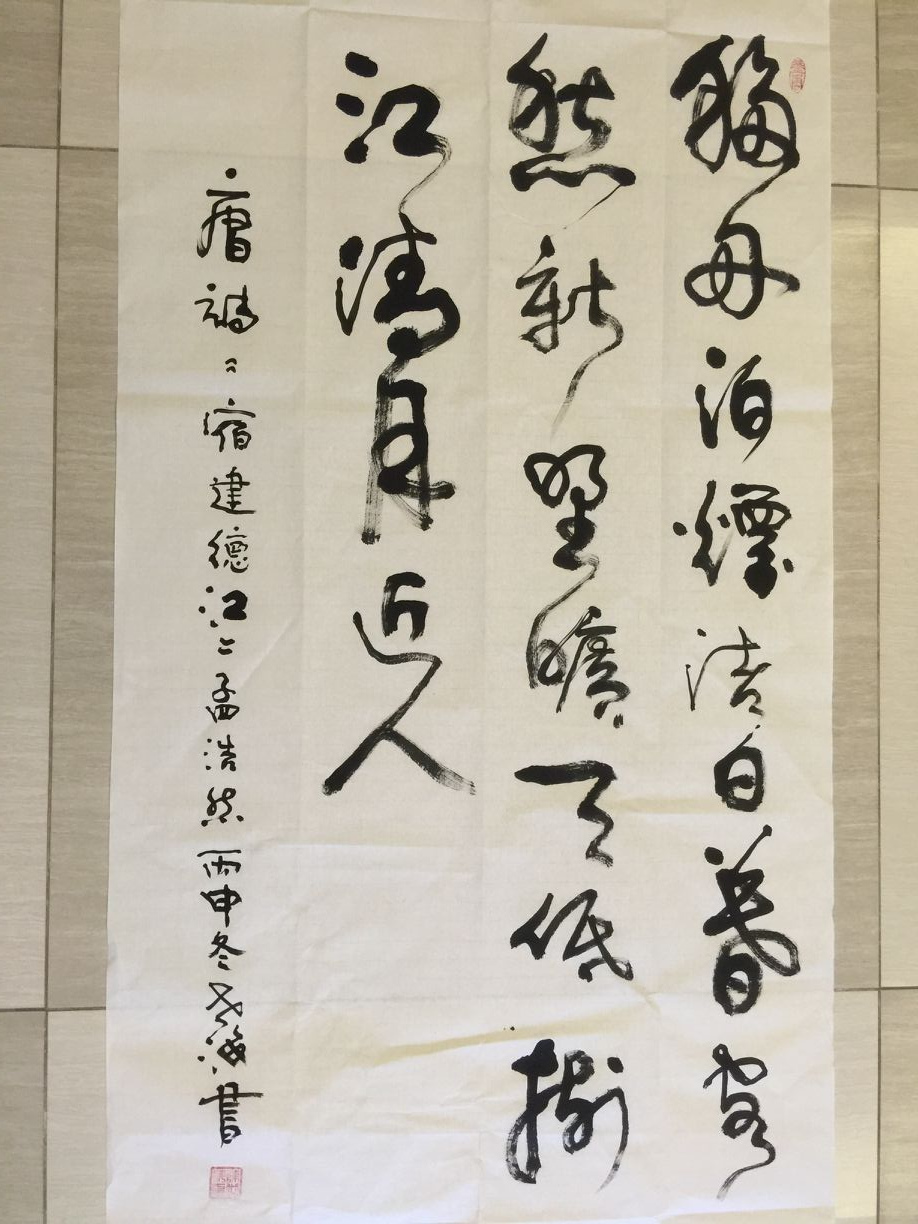 移舟泊煙渚日暮客
愁新野曠天低樹
江清月近人
唐詩宿建德江孟浩然丙申冬海書